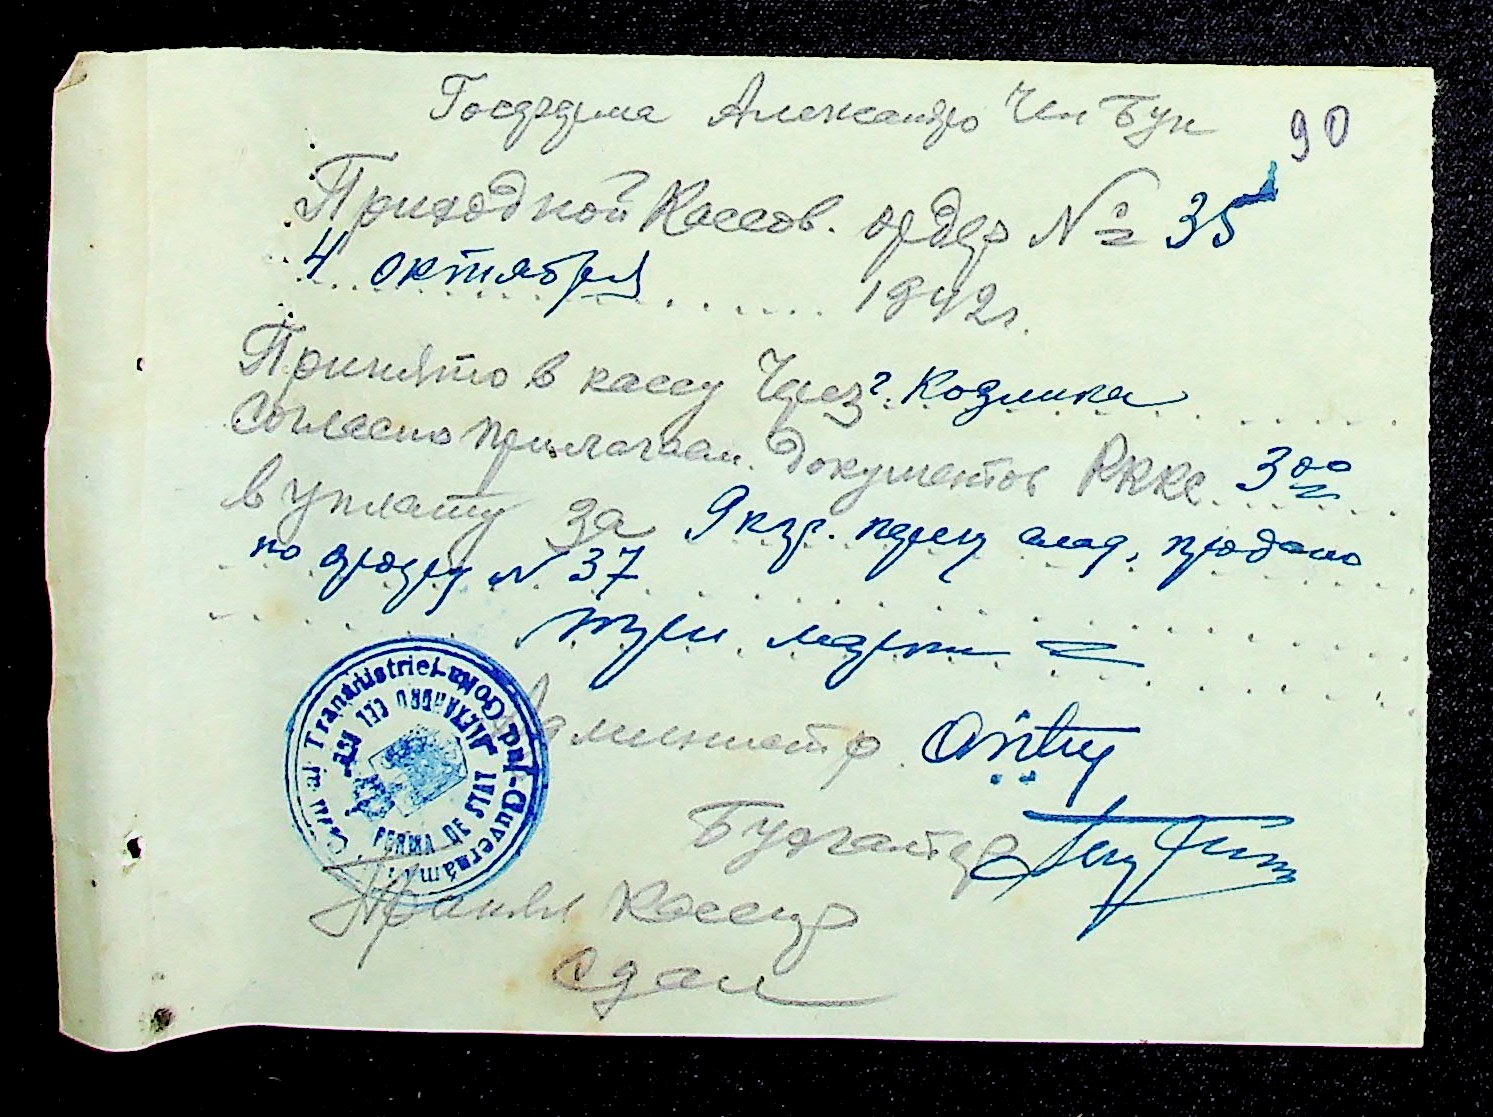 Госферма Александро Чел Бун
90
Приходной Кассов. ордер № 35
4 октября 1942г.
Принято в кассу Через г. Козлика
Согласно прилагаем. документов РККС 3 00
в уплату за 9 кгр. перец слад, продано
по ордеру № 37
три марки
Администр.
Бухгалтер
Принял Кассир
Сдал
Guvernământul Transnistriei Jud. Golta
ALEXANDRU CEL BUN
FERMA DE STAT